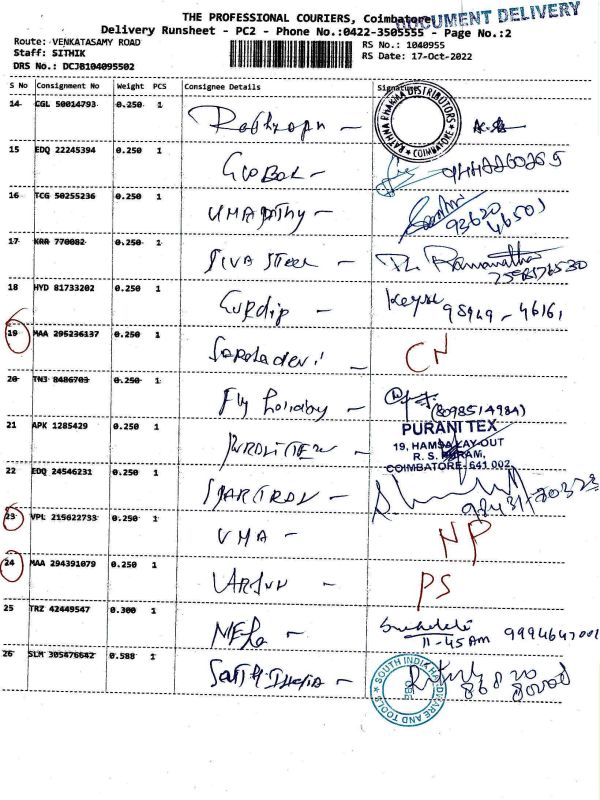 THE PROFESSIONAL COURIERS, Coimbatore
DOCUMENT DELIVERY
Delivery Runsheet - PC2 - Phone No.:0422-3505555 - Page No.:2
Route: VENKATASAMY ROAD
RS No.: 1040955
Staff: SITHIK
RS Date: 17-Oct-2022
DRS No.: DCJB104095502
S No Consignment No Weight PCS Consignee Details Signature
14 CGL 50014793 0.250 1
RATHNA PHARMA DISTRIBUTORS
COIMBATORE
15 EDQ 22245394 0.250 1 GLOBAL -
16 TCG 50255236 0.250 1 UMAPATHY - 93620
46501
17 KRR 770082 0.250 1 SIVA STEEL - Ramanathan
18 HYD 81733202 0.250 1 Gurdip - 95949 - 46161
19 MAA 295236137 0.250 1 Sarladevi - CN
20 TN3 8486703 0.250 1 Fly holiday - (8098514984)
PURANI TEX
19, HAMSA LAY-OUT
R. S. PURAM,
COIMBATORE-641 002
21 APK 1285429 0.250 1
22 EDQ 24546231 0.250 1
23 VPL 215622733 0.250 1 UMA - NP
24 MAA 294391079 0.250 1 VARJUN - PS
25 TRZ 42449547 0.300 1 11-45AM 9994647001
26 SLM 305476642 0.588 1 South India -
SOUTH INDIA HARDWARE AND TOOLS